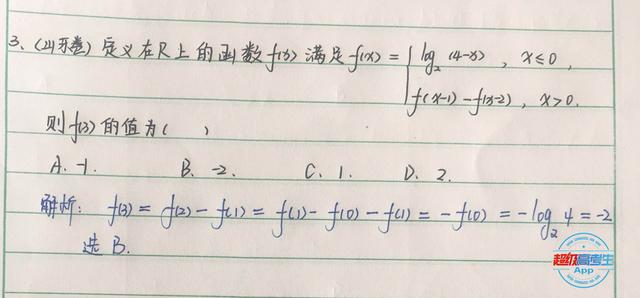 3、(山东卷) 定义在R上的函数f(x)满足f(x)={log₂(4-x), x≤0,
f(x-1)-f(x-2), x>0.
则f(3)的值为( )
A. -1. B. -2. C. 1. D. 2.
解析: f(3) = f(2) - f(1) = f(1) - f(0) - f(1) = -f(0) = -log₂4 = -2
选 B.
超级高考生
App